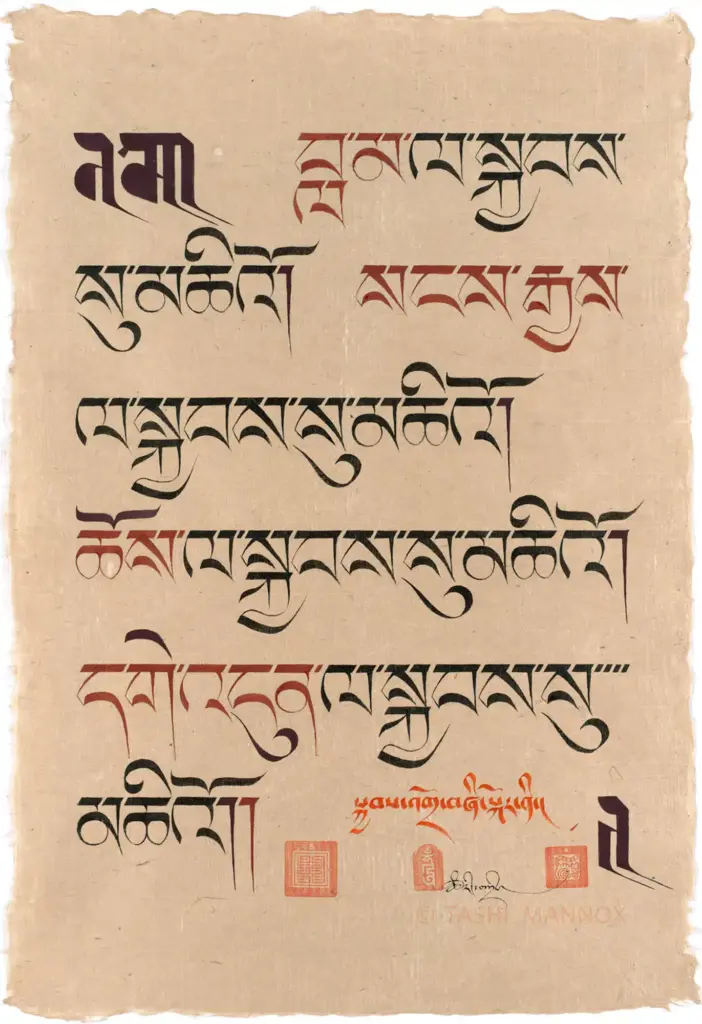 བླ་མ་ལ་སྐྱབས་
སུ་མཆིའོ། སངས་རྒྱས་
ལ་སྐྱབས་སུ་མཆིའོ།
ཆོས་ལ་སྐྱབས་སུ་མཆིའོ།
དགེ་འདུན་ལ་སྐྱབས་སུ་་་་
མཆིའོ།།
© TASHI MANNOX